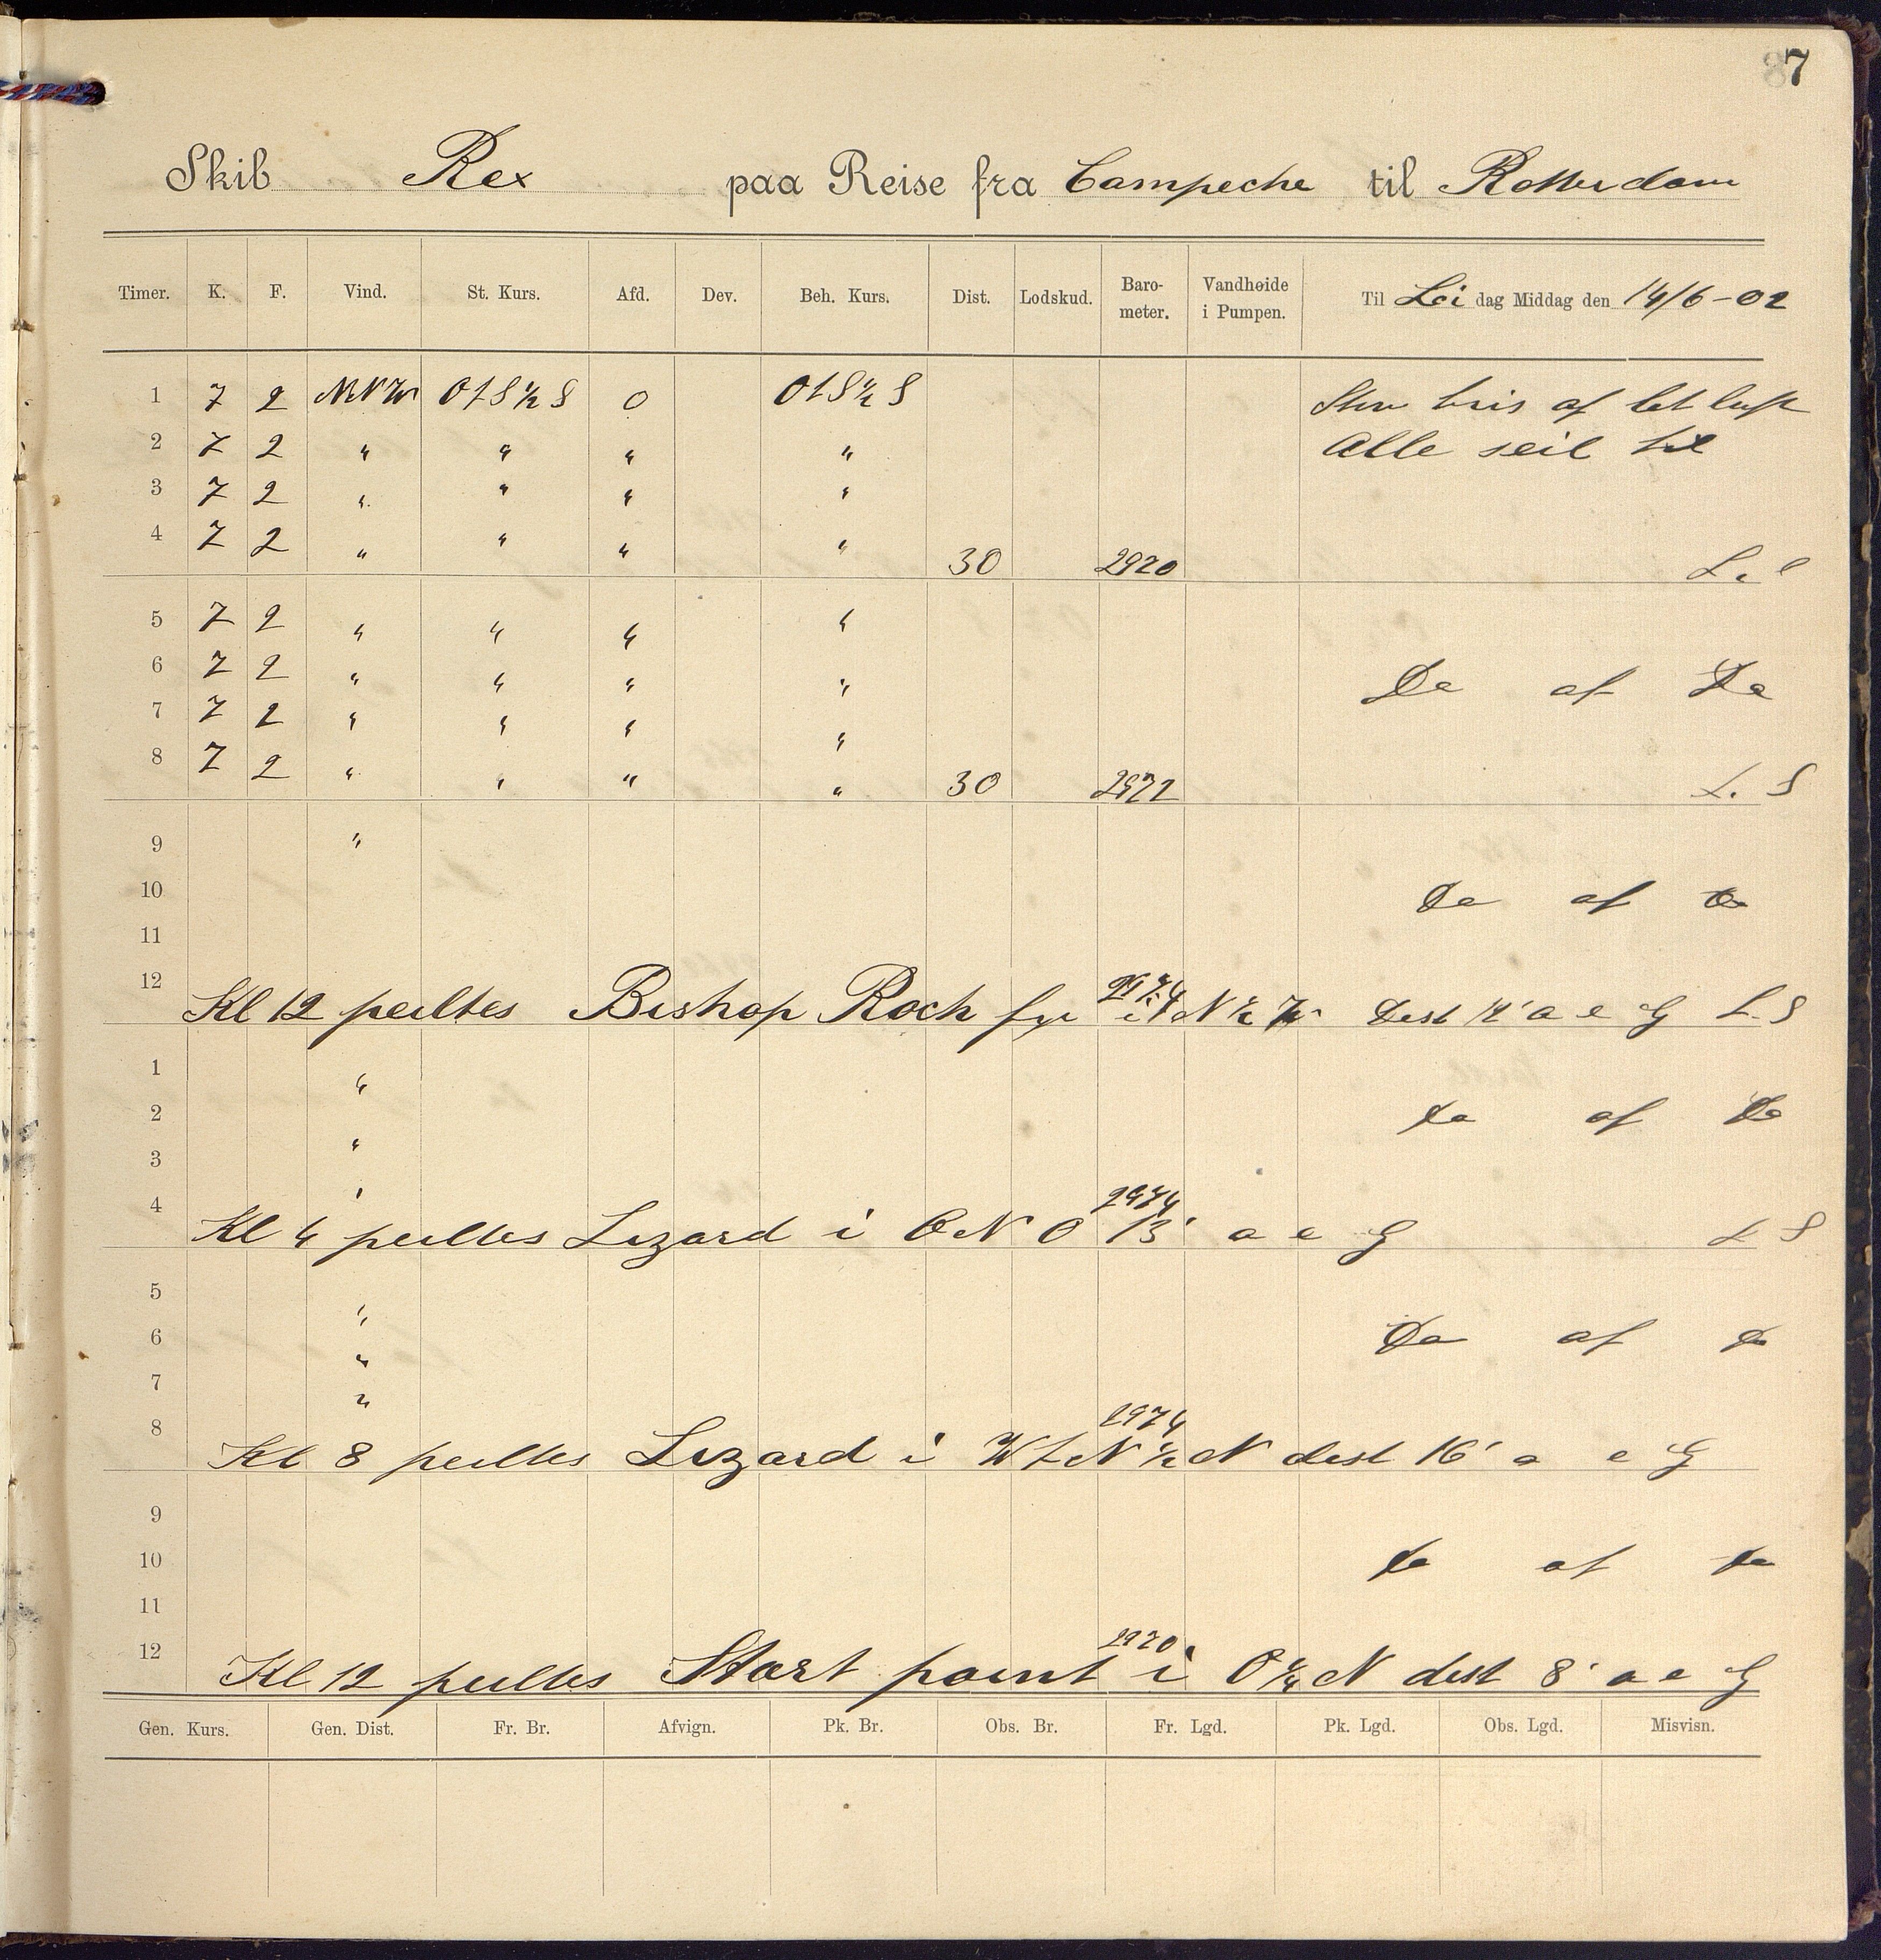 87
Skib Rex paa Reise fra Campeche til Rotterdam
Timer. K. F. Vind. St. Kurs. Afd. Dev. Beh. Kurs. Dist. Lodskud. Baro-meter. Vandhøide i Pumpen. Til Lö dag Middag den 14/6-02
1 7 2 NNW OtS½S 0 OtS½S bris af let luft
2 7 2 " " " " Alle seil til
3 7 2 " " " "
4 7 2 " " " " 30 2970
5 7 2 " " " "
6 7 2 " " " " Do af Do
7 7 2 " " " "
8 7 2 " " " " 30 2972 L. S
9 "
10 Do af Do
11
12 2974
Kl 12 peiltes Bishop Rock fyr i N½W dist 12' a e G L. S
1 "
2 Do af Do
3 "
4 " 2974
Kl 4 peiltes Lizard i ONO 13' a e G L S
5 "
6 " Do af Do
7 "
8 2974
Kl 8 peiltes Lizard i WtN½N dist 16' a e G
9
10 Do af Do
11
12 2970
Kl 12 peiltes Start point i O¼N dist 8' a e G
Gen. Kurs. Gen. Dist. Fr. Br. Afvign. Pk. Br. Obs. Br. Fr. Lgd. Pk. Lgd. Obs. Lgd. Misvisn.